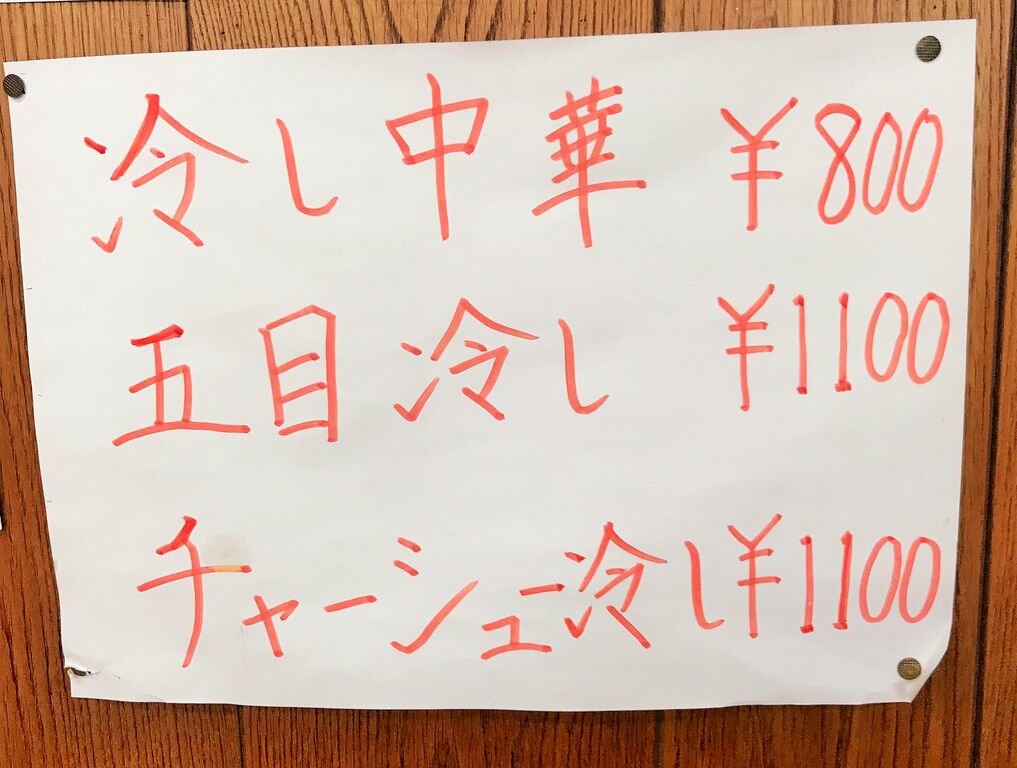 冷し中華 ¥800
五目冷し ¥1100
チャーシュー冷し ¥1100